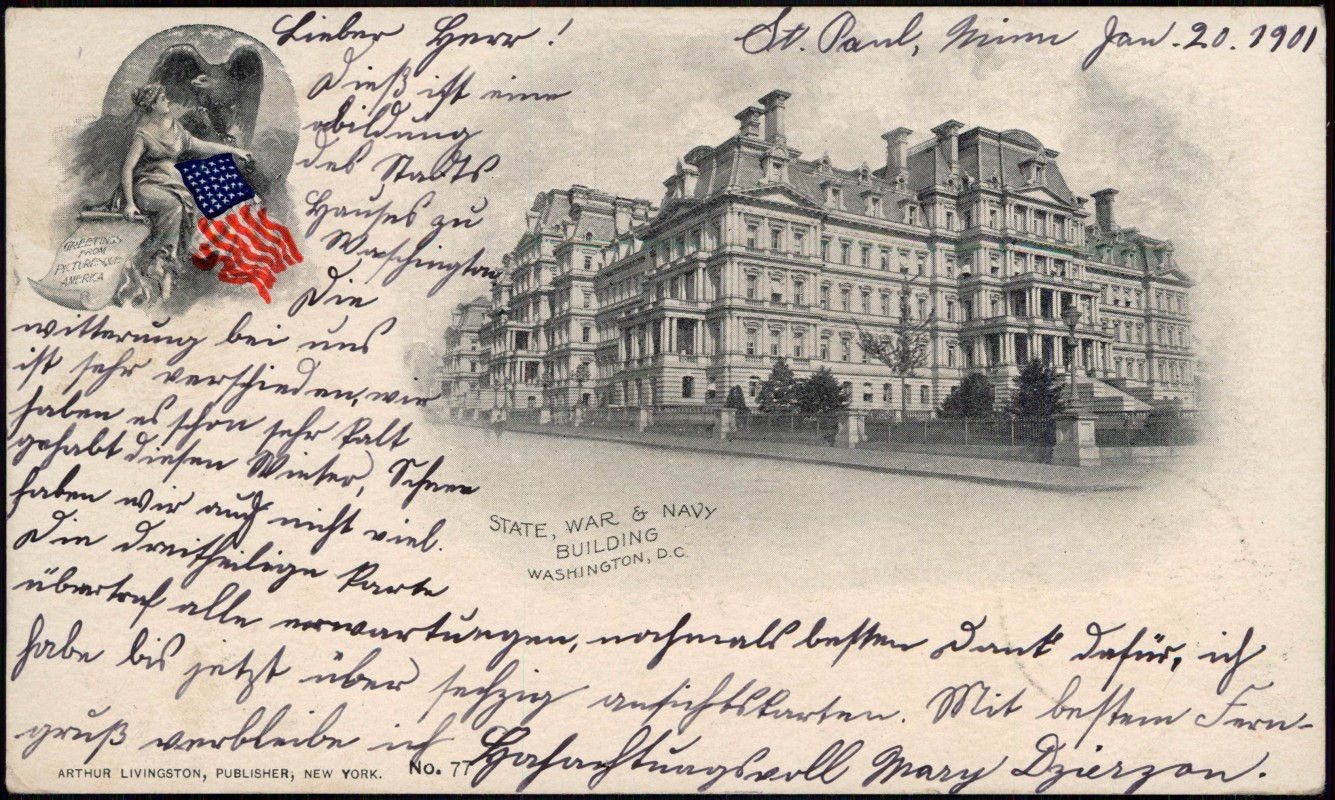 St. Paul, Minn Jan. 20. 1901
Lieber Herr!
Dieß ist eine
abildung
des Stadts
Hauses zu
Waschington
Die
witterung bei uns
ist sehr verschieden, wir
haben es schon sehr kalt
gehabt diesen Winter, Schnee
haben wir auch nicht viel.
Die dreitheilige Karte
übertraf alle erwartungen, nochmals besten Dank dafür, ich
habe bis jetzt über sechzig ansichtskarten. Mit bestem Fern-
gruß verbleibe ich Hochachtungsvoll Mary Dzierzon.
GREETINGS
FROM
PICTURESQUE
AMERICA
STATE, WAR & NAVY
BUILDING
WASHINGTON, D.C.
ARTHUR LIVINGSTON, PUBLISHER, NEW YORK. No. 77